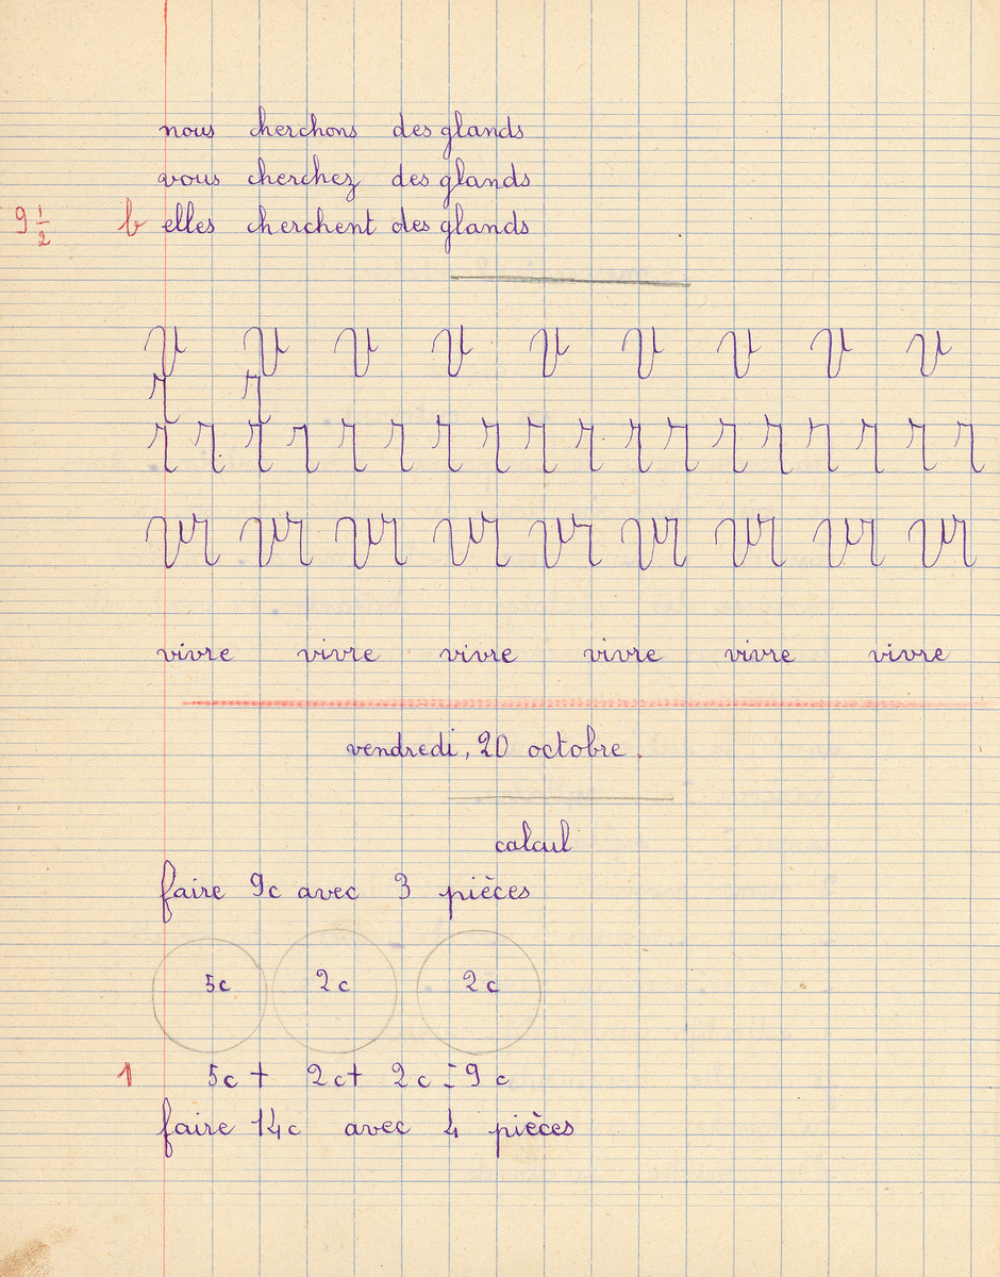 nous cherchons des glands
vous cherchez des glands
9 1/2 b elles cherchent des glands
v v v v v v v v v
r r
r r r r r r r r r r r r r r r r r r
vr vr vr vr vr vr vr vr vr
vivre vivre vivre vivre vivre vivre
vendredi, 20 octobre.
calcul
faire 9c avec 3 pièces
5c 2c 2c
1 5c + 2c + 2c = 9c
faire 14c avec 4 pièces